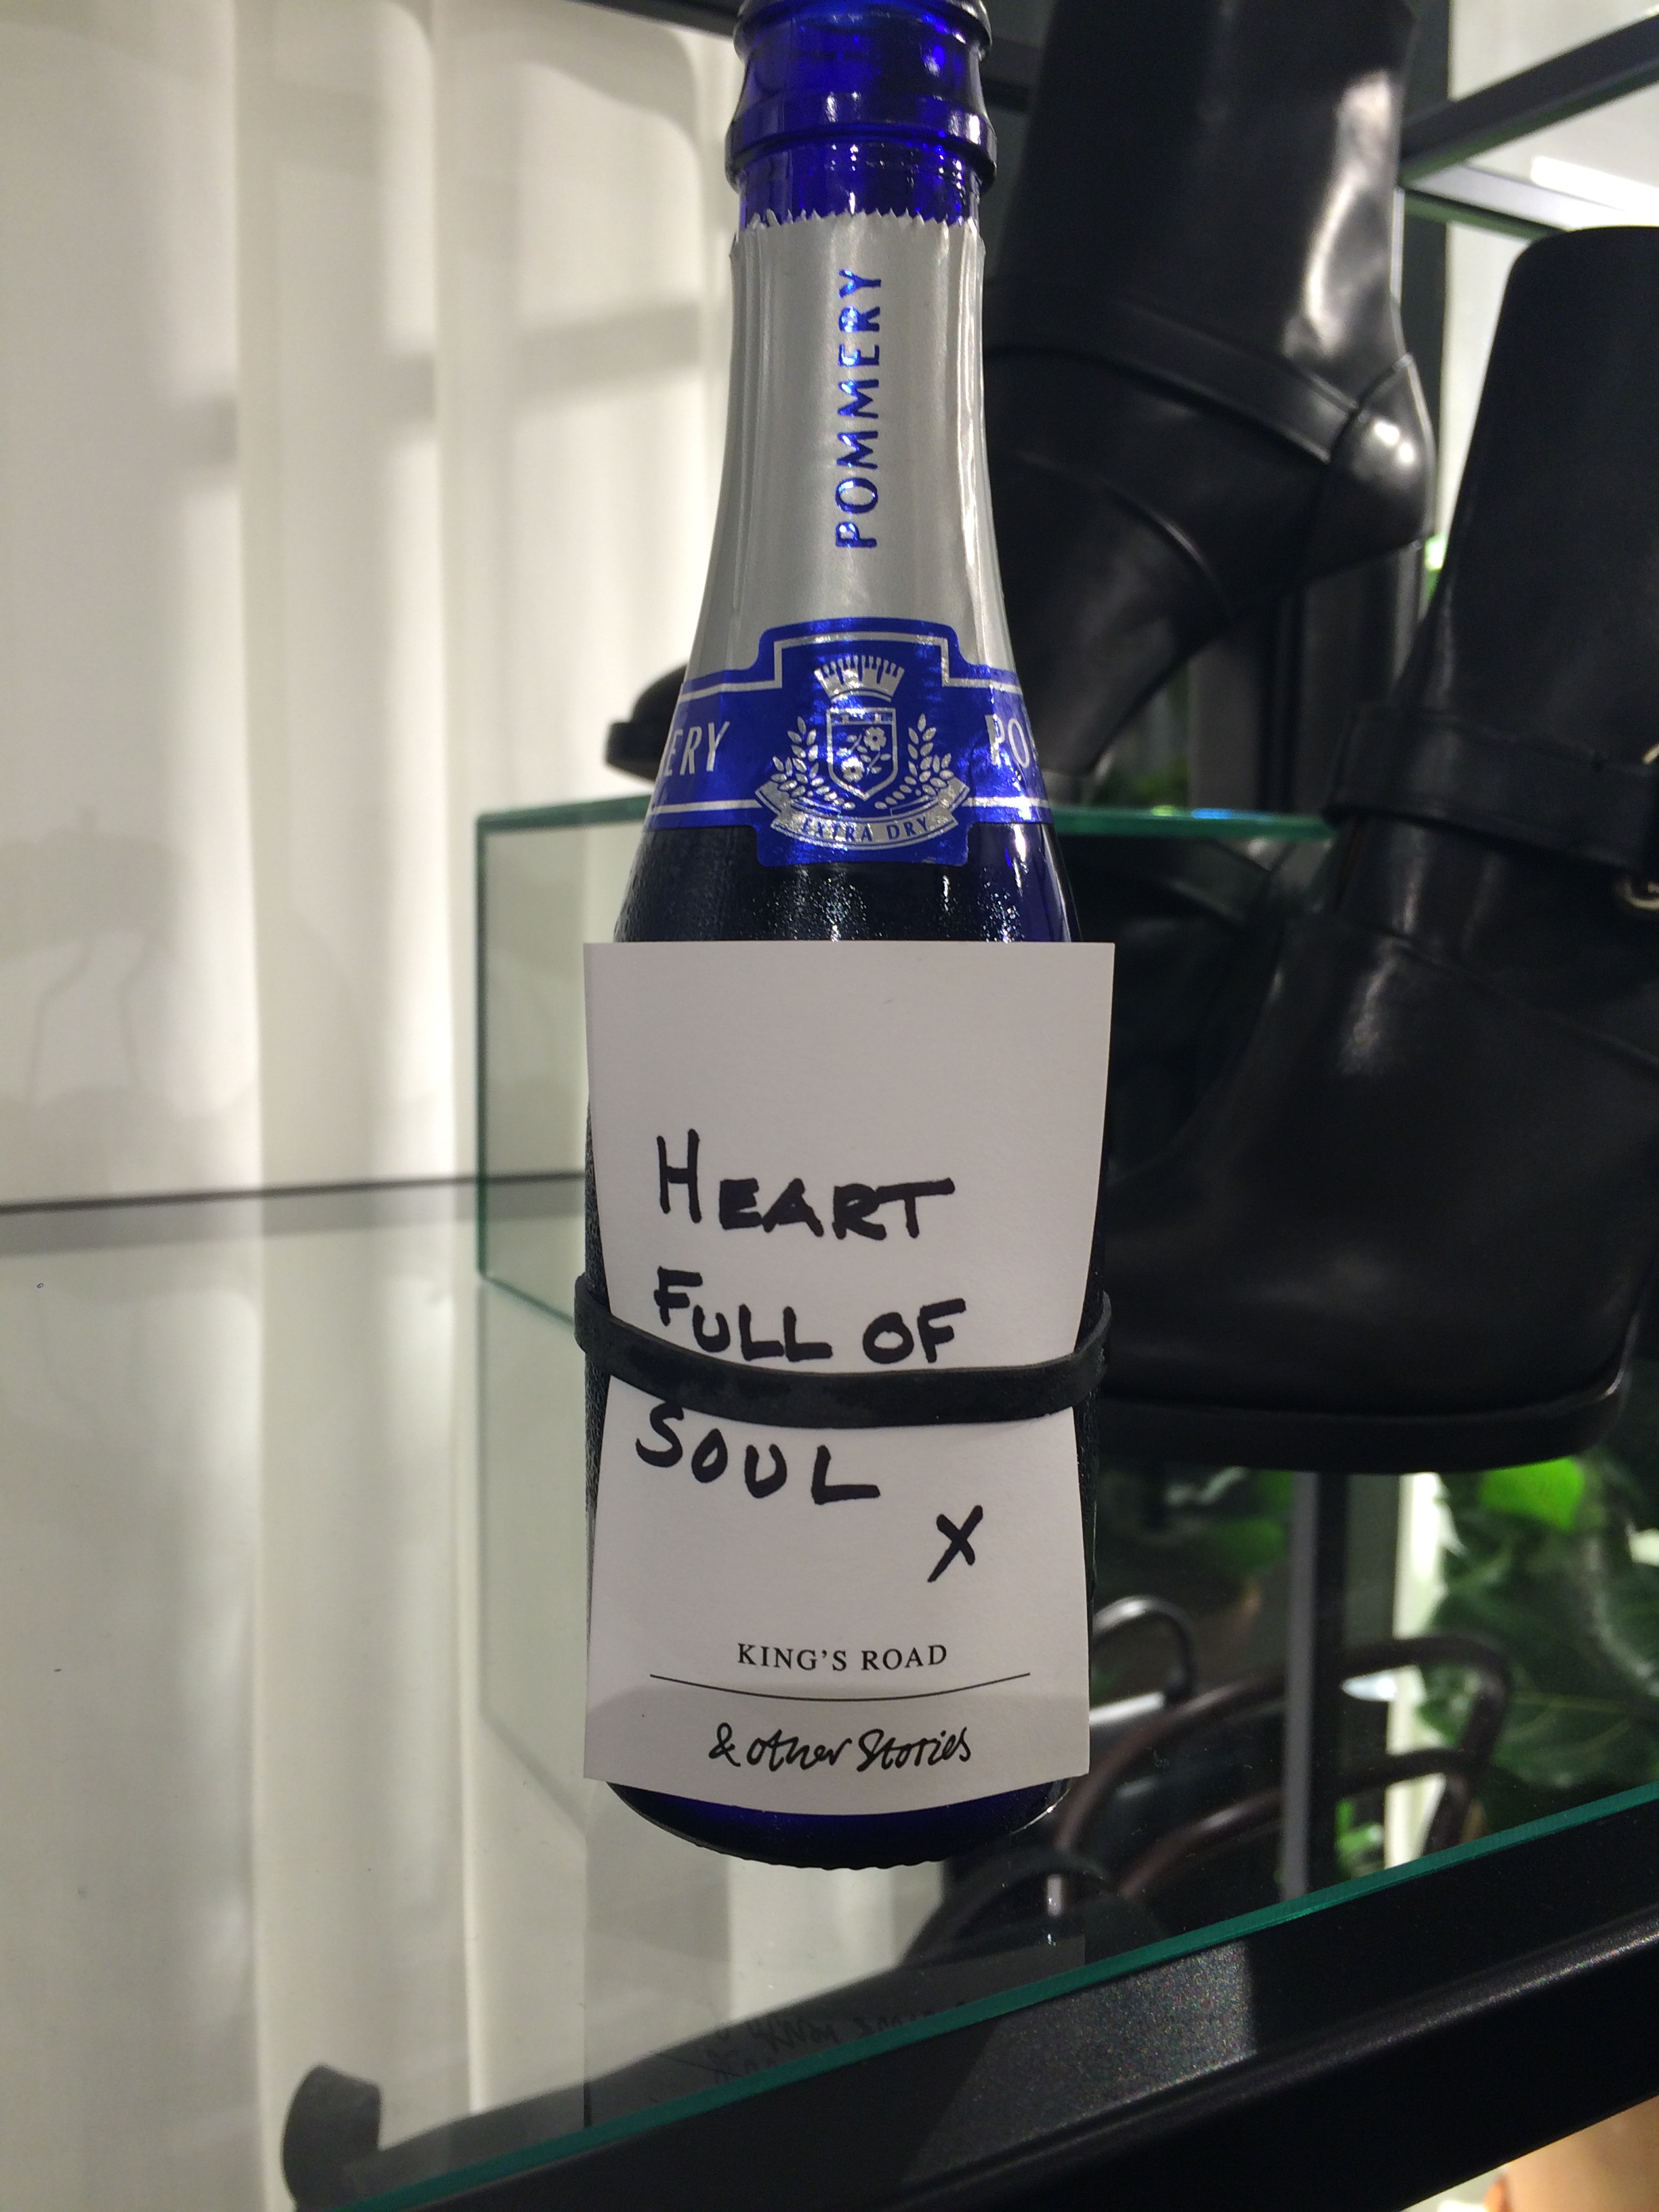 POMMERY
ERY
PO
EXTRA DRY
HEART
FULL OF
SOUL
X
KING'S ROAD
& other Stories